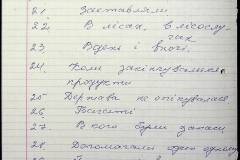 21. Заставляли
22. В лісах, в лісослугах
23. Вдень і вночі.
24. Коли закінчувались
продукти
25 Держава не опікувалась
26. Багаті
27. В кого були запаси
28. Допомагали один одному